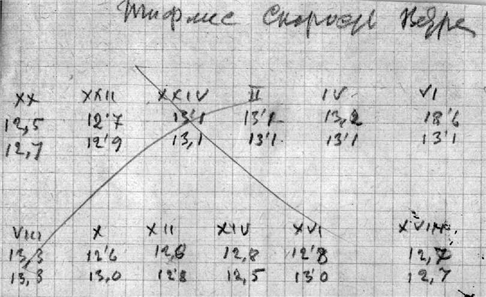 Тифлис Скорость Ветра
XX XXII XXIV II IV VI
12,5 12'7 13'1 13'1 13,2 13'1
12,7 12'9 13,1 13'1 13'1 13'1
VIII X XII XIV XVI XVIII
13,3 12'6 12,6 12,8 12'8 12,7
13,3 13,0 12'8 12,5 13'0 12,7